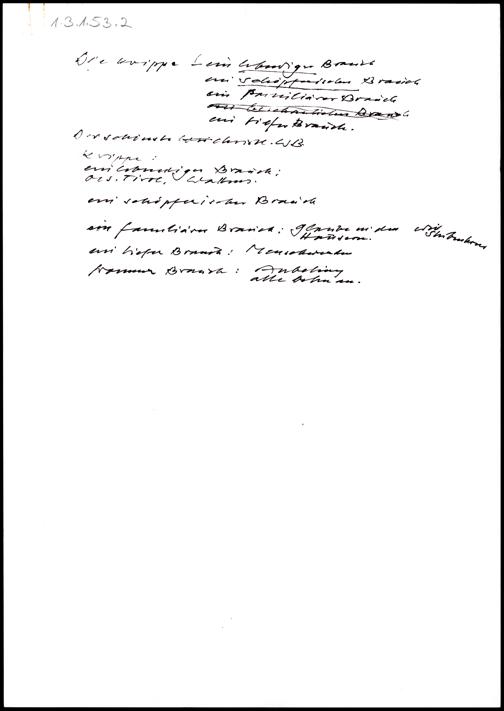 1.3.1.53.2
Die Krippe ein lebendiger Brauch
ein schöpferischer Brauch
ein familiärer Brauch
ein beschaulicher Brauch
ein tiefer Brauch.
Der schönste
Krippe:
ein lebendiger Brauch:
bes. Tirol,
ein schöpferischer Brauch
ein familiärer Brauch: Glaube in den
Häusern.
ein tiefer Brauch: Menschwerden
frommer Brauch: Anbetung
alle beten an.